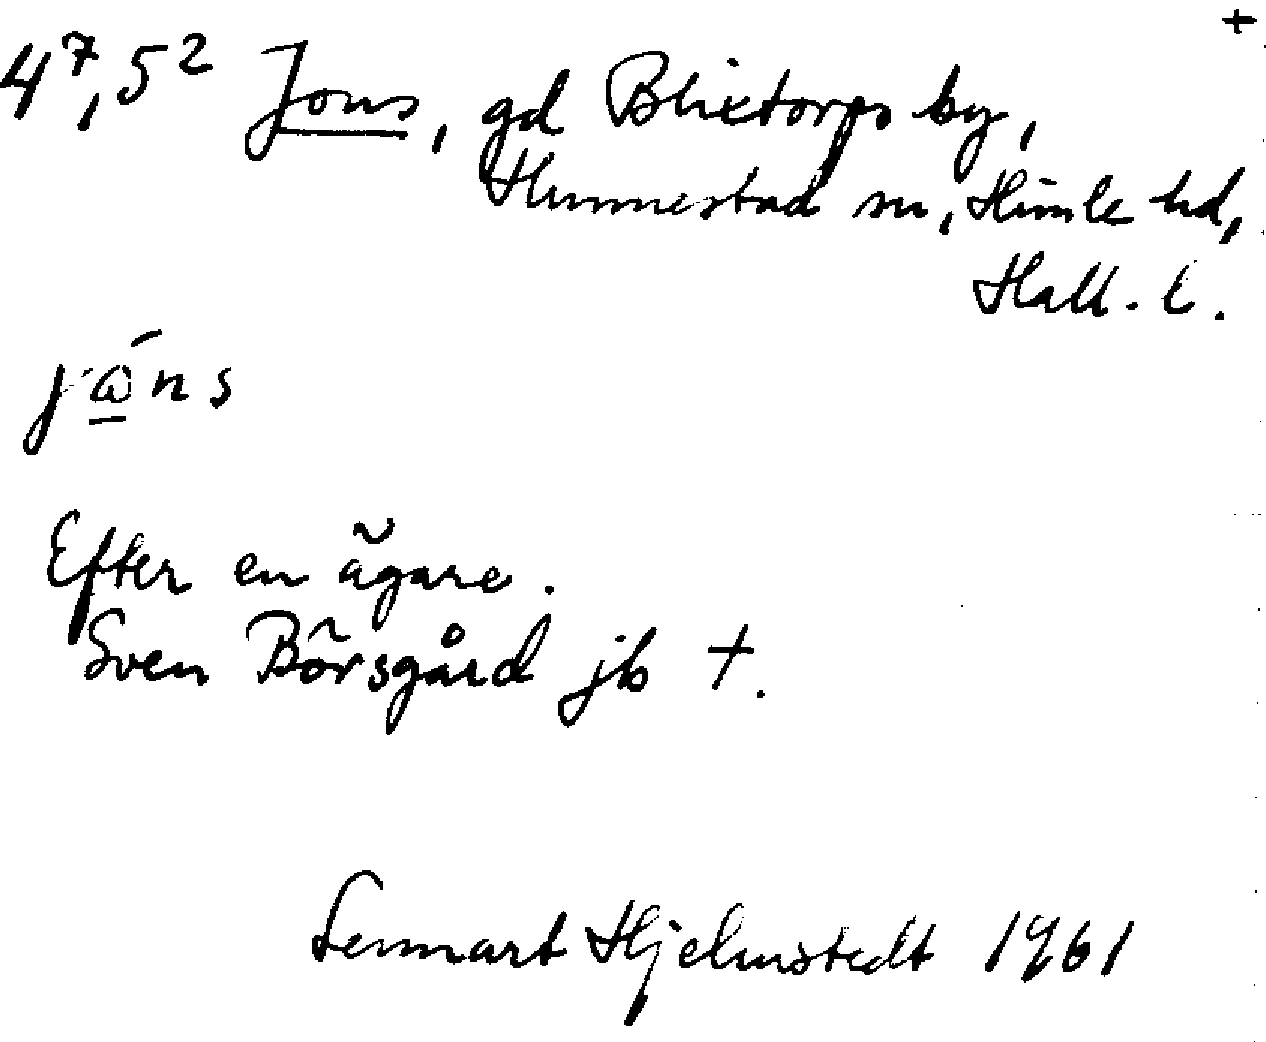 +
4⁷, 5² Jons, gd Blixtorps by,
Hunnestad sn, Himle hd,
Hall. l.
jώ̲ns
Efter en ägare.
Sven Börsgård jb +.
Lennart Hjelmstedt 1961